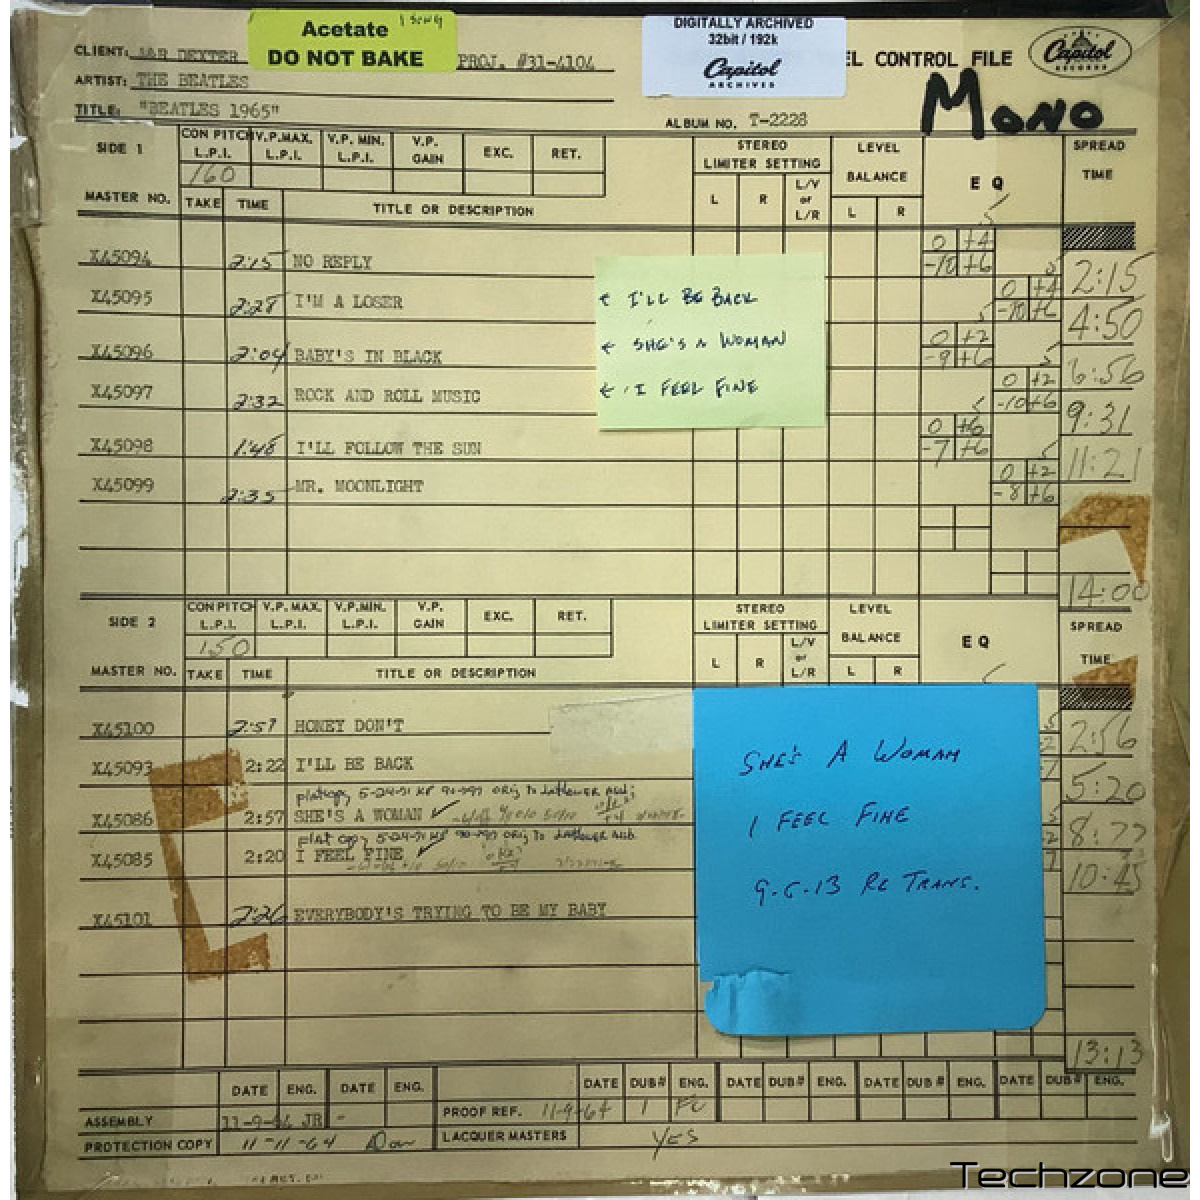 Acetate 1 SONG
DO NOT BAKE
DIGITALLY ARCHIVED
32bit / 192k
Capitol
ARCHIVES
CLIENT: A&R DEXTER PROJ. #31-4104
EL CONTROL FILE
Capitol
RECORDS
ARTIST: THE BEATLES
MONO
TITLE: "BEATLES 1965"
ALBUM NO. T-2228
SIDE 1 CON PITCH L.P.I. V.P.MAX. L.P.I. V.P. MIN. L.P.I. V.P. GAIN EXC. RET. STEREO LIMITER SETTING LEVEL BALANCE EQ SPREAD TIME
160
MASTER NO. TAKE TIME TITLE OR DESCRIPTION L R L/V or L/R L R
0 +4
X45094 2:15 NO REPLY -10 +6 2:15
X45095 2:28 I'M A LOSER ← I'LL BE BACK 0 +4 -10 +6 4:50
X45096 2:04 BABY'S IN BLACK ← SHE'S A WOMAN 0 +2 -9 +6 6:56
X45097 2:32 ROCK AND ROLL MUSIC ← I FEEL FINE 0 +2 -10 +6 9:31
X45098 1:48 I'LL FOLLOW THE SUN 0 +6 -7 +6 11:21
X45099 2:35 MR. MOONLIGHT 0 +2 -8 +6
14:00
SIDE 2 CON PITCH L.P.I. V.P. MAX. L.P.I. V.P.MIN. L.P.I. V.P. GAIN EXC. RET. STEREO LIMITER SETTING LEVEL BALANCE EQ SPREAD TIME
150
MASTER NO. TAKE TIME TITLE OR DESCRIPTION L R L/V or L/R L R
X45100 2:57 HONEY DON'T 2:56
X45093 2:22 I'LL BE BACK 5:20
X45086 2:57 SHE'S A WOMAN
X45085 2:20 I FEEL FINE 10:45
X45101 2:26 EVERYBODY'S TRYING TO BE MY BABY
SHE'S A WOMAN
I FEEL FINE
9-6-13 RE TRANS.
13:13
DATE ENG. DATE ENG. DATE DUB# ENG. DATE DUB# ENG. DATE DUB# ENG. DATE DUB# ENG.
ASSEMBLY 11-9-64 JR PROOF REF. 11-9-64 1
PROTECTION COPY 11-11-64 LACQUER MASTERS YES
Techzone